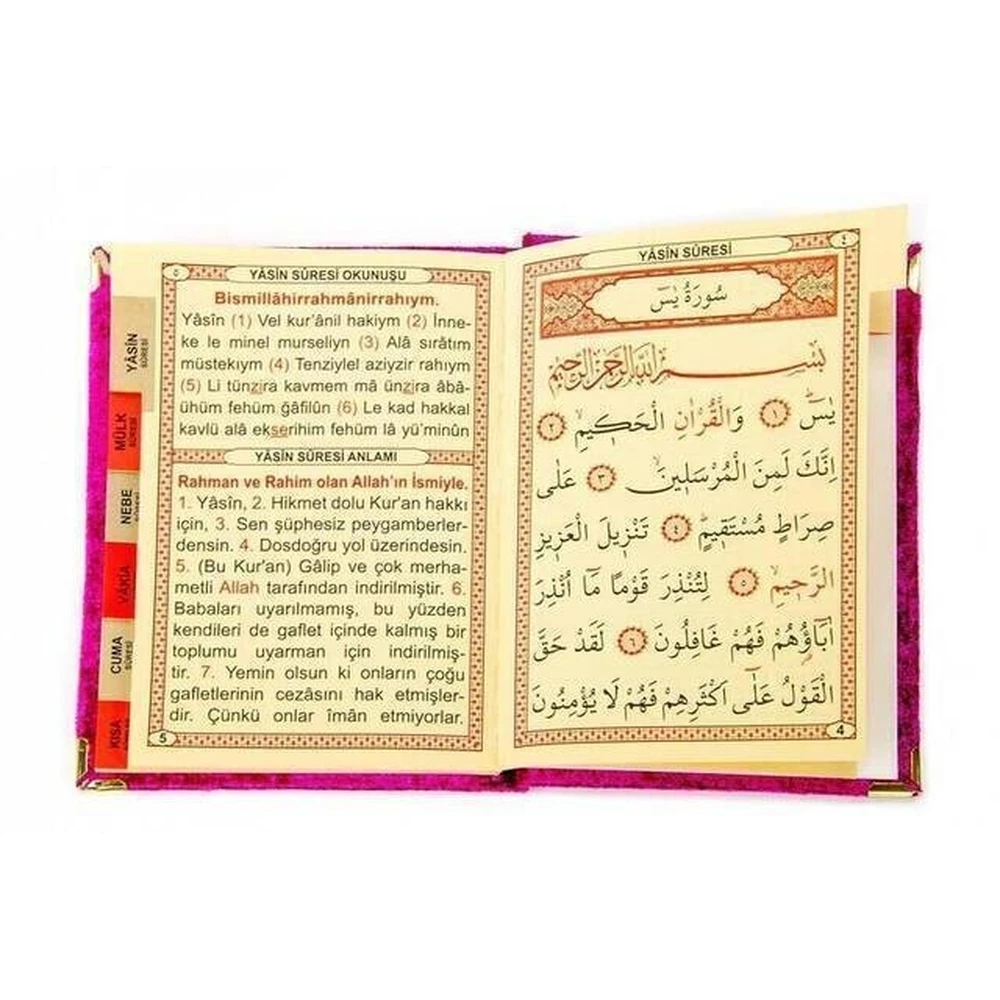 YÂSİN SÛRESİ
٤
سُورَةُ يٰسٓ
بِسْمِ اللّٰهِ الرَّحْمٰنِ الرَّحِيمِ
يٰسٓ ﴿١﴾ وَالْقُرْاٰنِ الْحَكِيمِ ﴿٢﴾
اِنَّكَ لَمِنَ الْمُرْسَلِينَ ﴿٣﴾ عَلٰى
صِرَاطٍ مُسْتَقِيمٍ ﴿٤﴾ تَنْزِيلَ الْعَزِيزِ
الرَّحِيمِ ﴿٥﴾ لِتُنْذِرَ قَوْمًا مَٓا اُنْذِرَ
اٰبَٓاؤُ۬هُمْ فَهُمْ غَافِلُونَ ﴿٦﴾ لَقَدْ حَقَّ
الْقَوْلُ عَلٰٓى اَكْثَرِهِمْ فَهُمْ لَا يُؤْمِنُونَ
4
٥
YÂSİN SÛRESİ OKUNUŞU
Bismillâhirrahmânirrahıym.
Yâsîn (1) Vel kur'ânil hakiym (2) İnne-
ke le minel murseliyn (3) Alâ sırâtım
müstekıym (4) Tenziylel aziyzir rahıym
(5) Li tünzira kavmem mâ ünzira âbâ-
ühüm fehüm ğâfilûn (6) Le kad hakkal
kavlü alâ ekserihim fehüm lâ yü'minûn
YÂSİN SÛRESİ ANLAMI
Rahman ve Rahim olan Allah'ın İsmiyle.
1. Yâsîn, 2. Hikmet dolu Kur'an hakkı
için, 3. Sen şüphesiz peygamberler-
densin. 4. Dosdoğru yol üzerindesin.
5. (Bu Kur'an) Gâlip ve çok merha-
metli Allah tarafından indirilmiştir. 6.
Babaları uyarılmamış, bu yüzden
kendileri de gaflet içinde kalmış bir
toplumu uyarman için indirilmiş-
tir. 7. Yemin olsun ki onların çoğu
gafletlerinin cezâsını hak etmişler-
dir. Çünkü onlar îmân etmiyorlar.
5
YÂSİN
SÛRESİ
MÜLK
SÛRESİ
NEBE
SÛRESİ
VÂKİA
CUMA
SÛRESİ
KISA